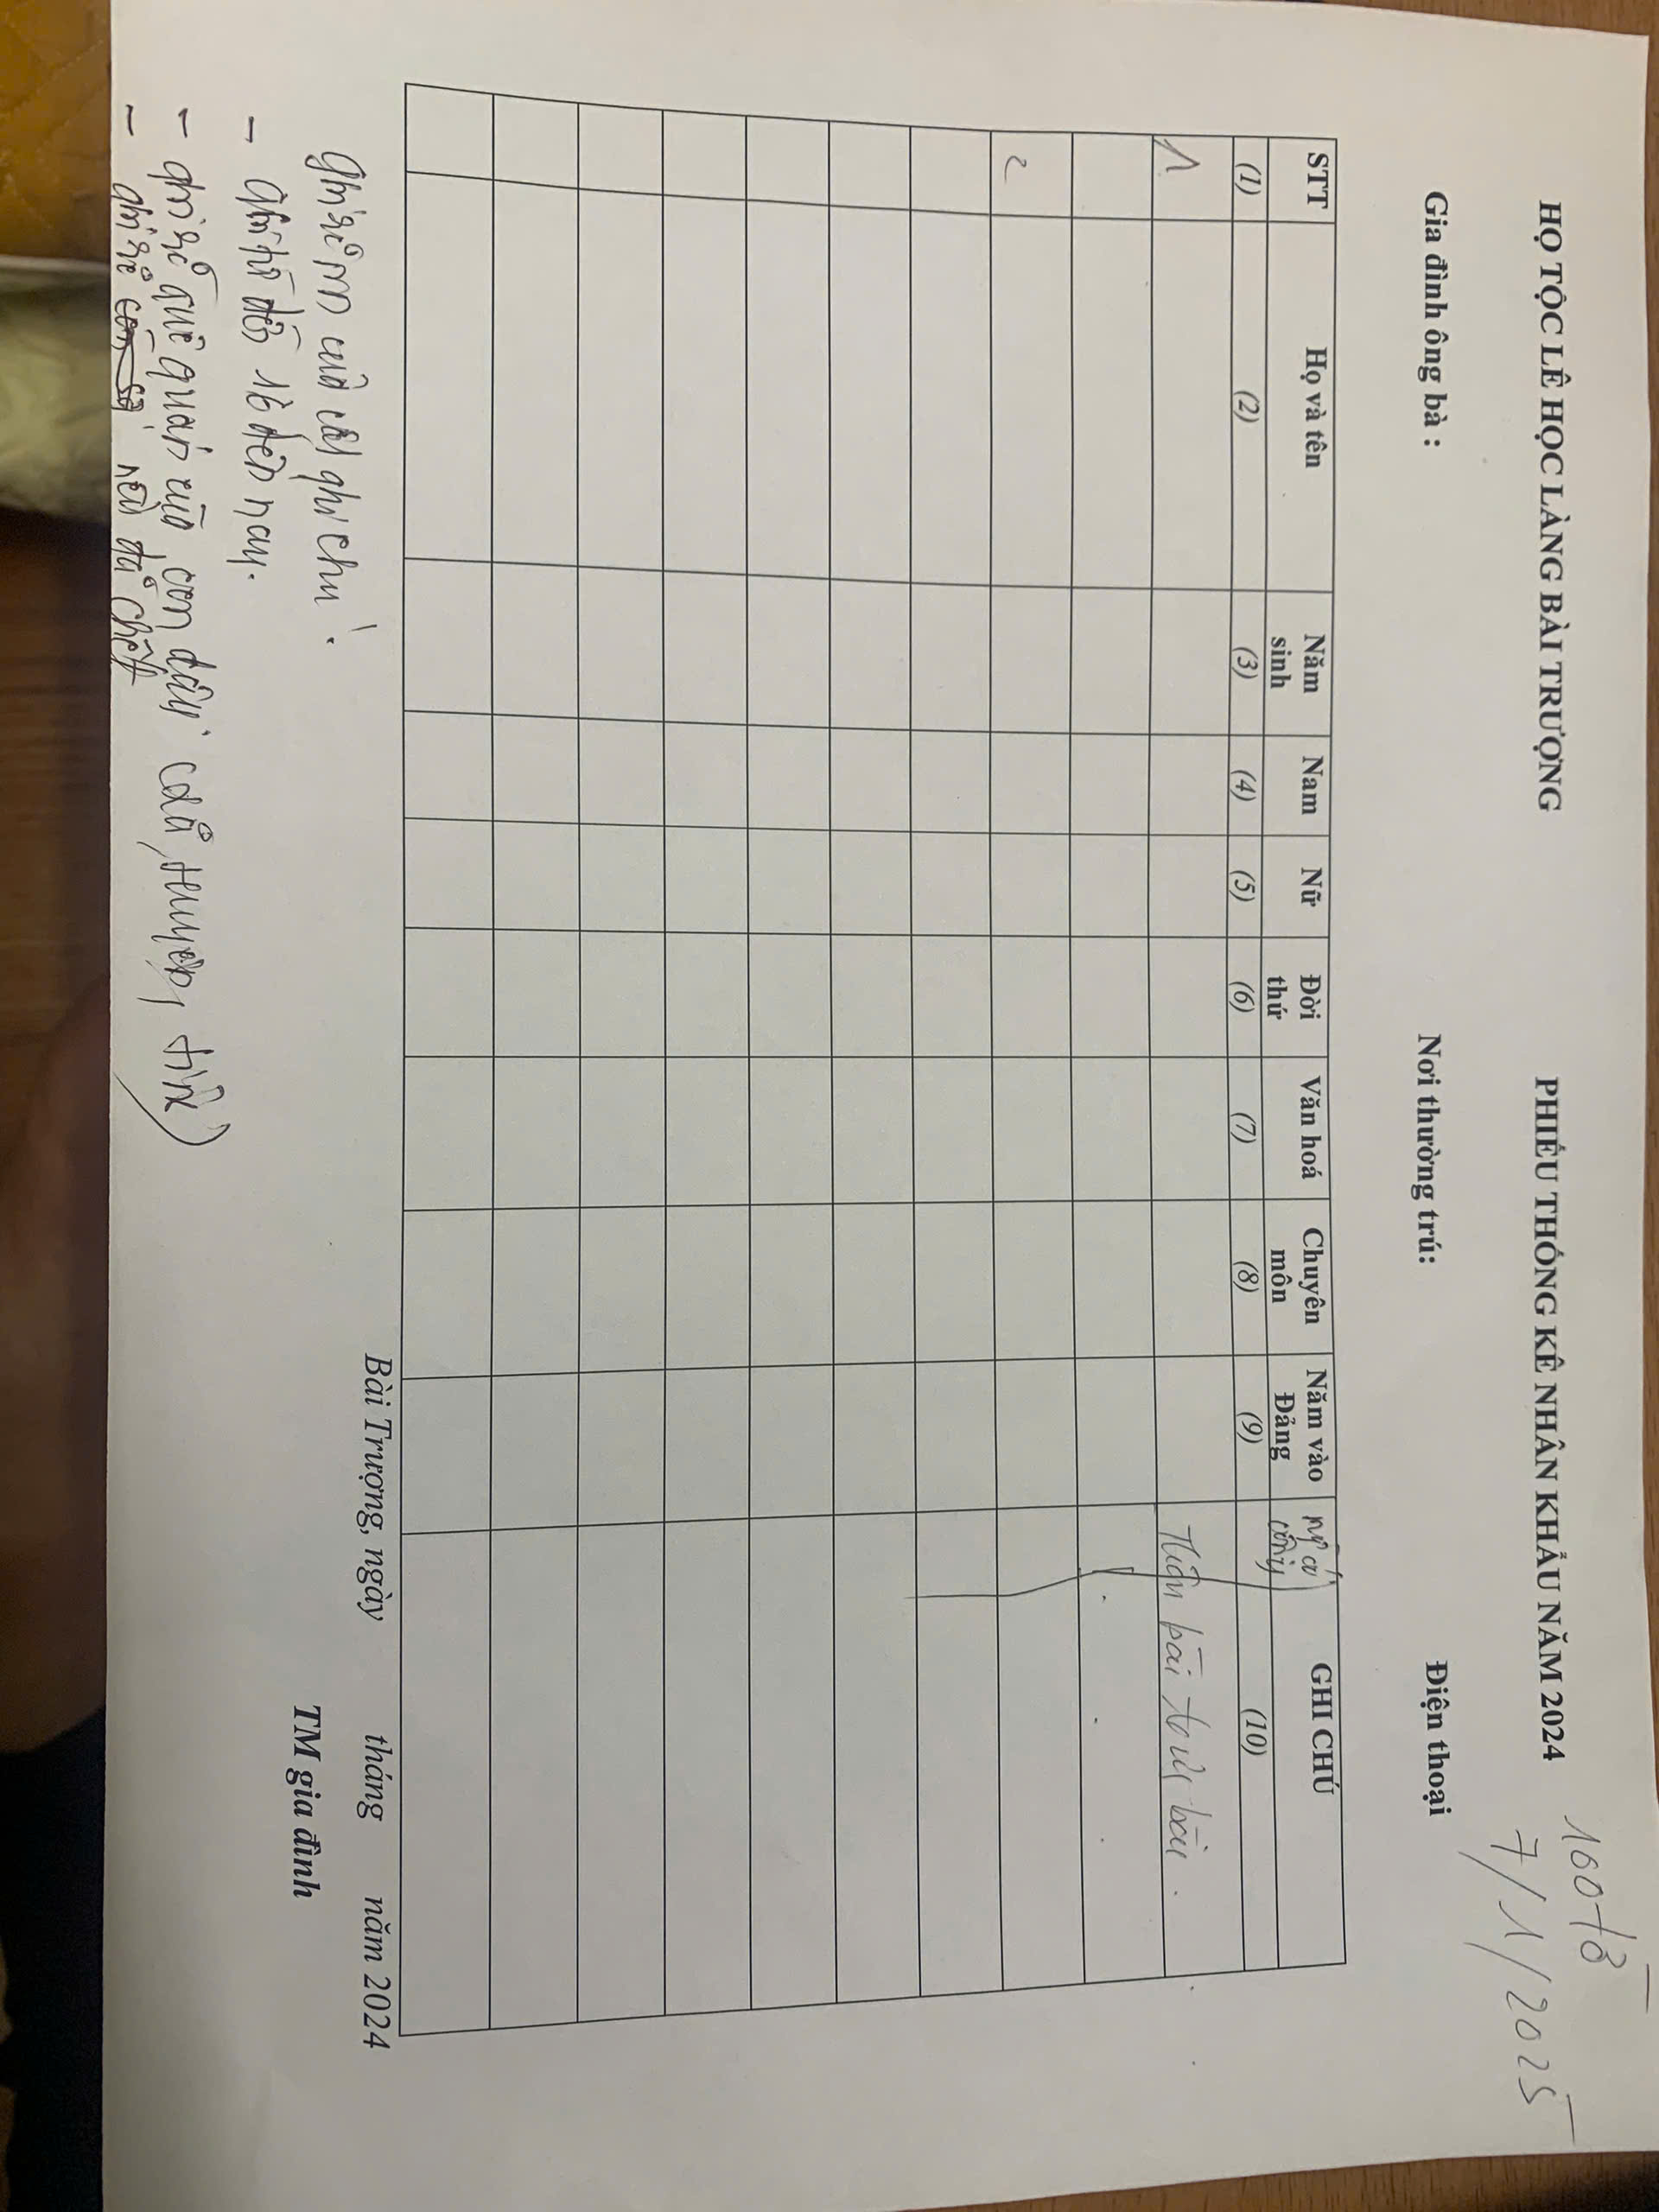 HỌ TỘC LÊ HỌC LÀNG BÀI TRƯỢNG
PHIẾU THỐNG KÊ NHÂN KHẨU NĂM 2024
100 tờ
7/1/2025
Gia đình ông bà :
Nơi thường trú:
Điện thoại
STT Họ và tên Năm sinh Nam Nữ Đời thứ Văn hoá Chuyên môn Năm vào Đảng GHI CHÚ
(1) (2) (3) (4) (5) (6) (7) (8) (9) (10)
1
2
Bài Trượng, ngày tháng năm 2024
TM gia đình
ghi chú:
- 16 đến nay.
- ghi rõ quê quán của con dâu huyện, tỉnh)
- ghi rõ nếu đã chết